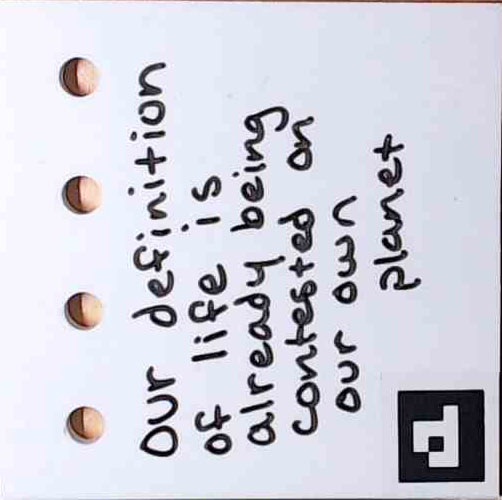 Our definition
of life is
already being
contested on
our own
planet